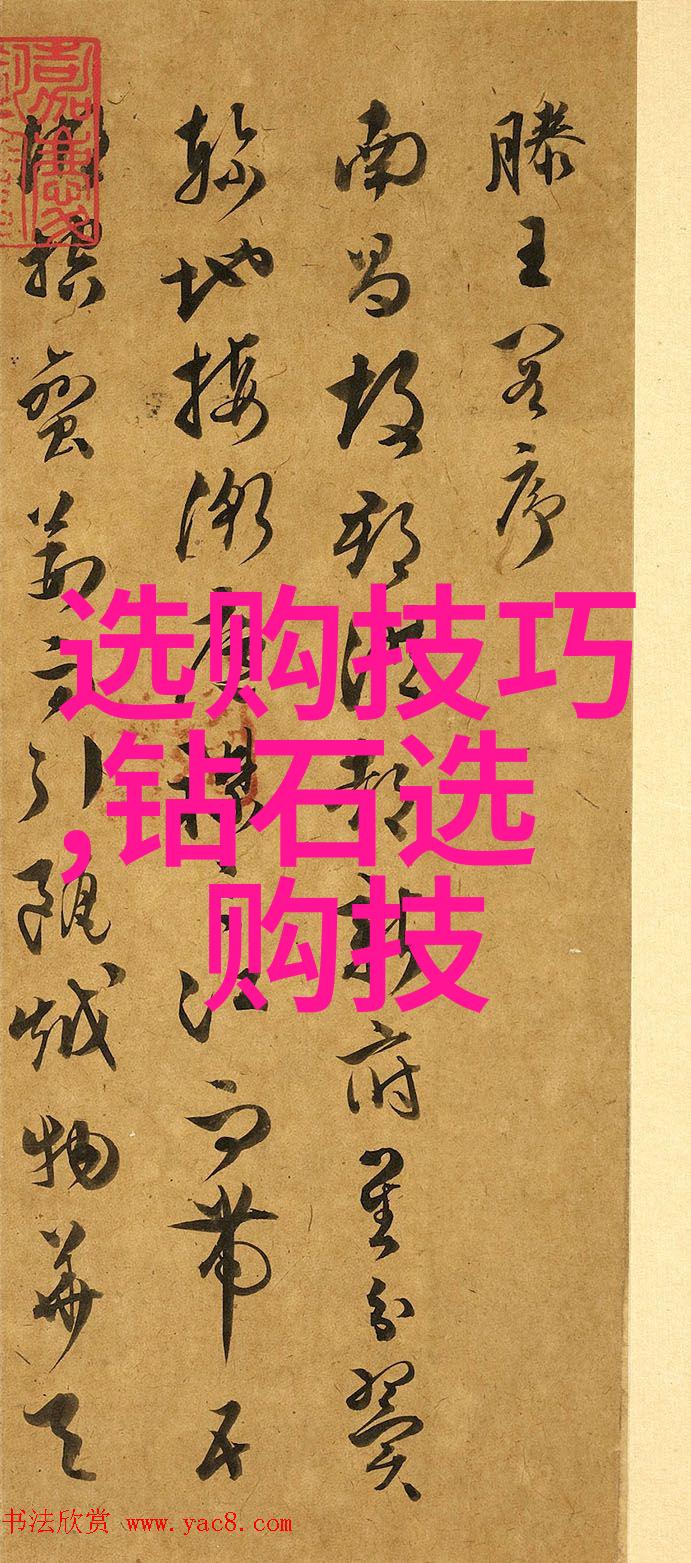 滕王閣序
南昌故郡洪都新府星分翼
軫地接衡廬襟三江而帶五
湖控蠻荊而引甌越物華天
选购技巧
,钻石选
购技
书法欣赏 www.yac8.com